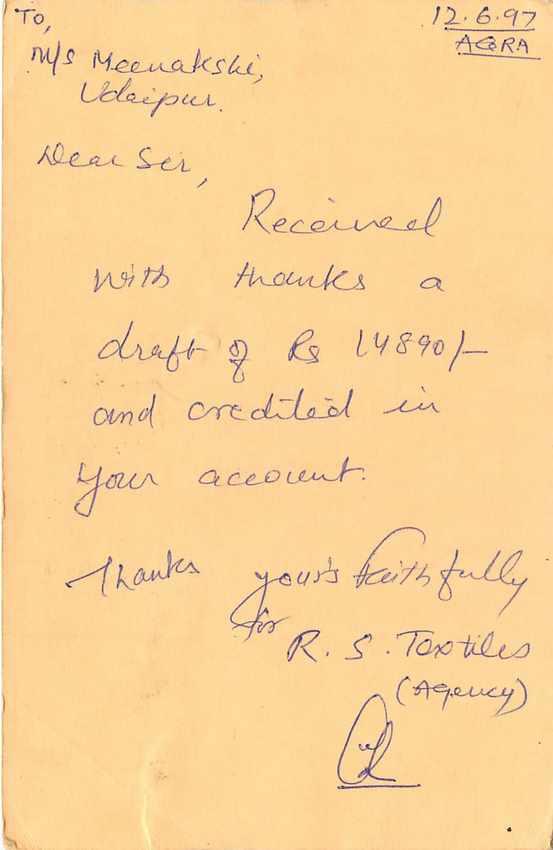 To,
12.6.97
AGRA
M/S Meenakshi,
Udaipur.
Dear Sir,
Received
with thanks a
draft of Rs 14890/-
and credited in
your account.
Thanks your's faithfully
for
R. S. Textiles
(Agency)